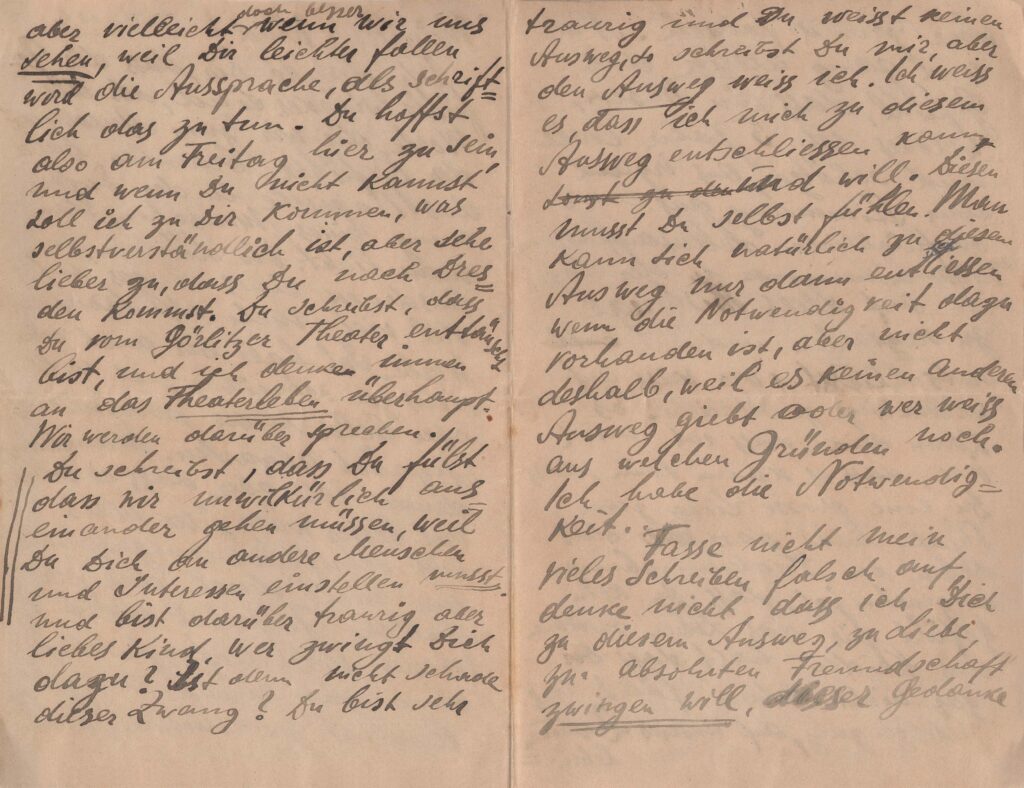 doch besser
aber vielleicht wenn wir uns
sehen, weil Dir leichter fallen
wird die Aussprache, als schrift=
lich das zu tun. Du hoffst
also am Freitag hier zu sein,
und wenn Du nicht kannst
soll ich zu Dir kommen, was
selbstverständlich ist, aber sehe
lieber zu, dass Du nach Dres=
den kommst. Du schreibst, dass
Du vom Görlitzer Theater enttäuscht
bist, und ich denken immer
an das Theaterleben überhaupt.
Wir werden darüber sprechen.
Du schreibst, dass Du fülst
dass wir unwilkürlich aus=
einander gehen müssen, weil
Du Dich an andere Menschen
und Interessen einstellen musst
und bist darüber traurig, aber
liebes Kind, wer zwingt Dich
dazu? Ist denn nicht schade
dieser Zwang? Du bist sehr
traurig und Du weisst keinen
Ausweg, so schreibst Du mir, aber
den Ausweg weiss ich. Ich weiss
es, dass ich mich zu diesem
Ausweg entschliessen kann,
und will. Diesen
musst Du selbst fühlen. Man
kann sich natürlich zu diesem
Ausweg nur dann entschliessen
wenn die Notwendigkeit dazu
vorhanden ist, aber nicht
deshalb, weil es keinen anderen
Ausweg giebt oder wer weiss
aus welchen Gründen noch.
Ich habe die Notwendig=
keit.
Fasse nicht mein
vieles Schreiben falsch auf,
denke nicht, dass ich Dich
zu diesem Ausweg, zu Liebe,
zu absoluten Freundschaft
zwingen will, dieser Gedanke